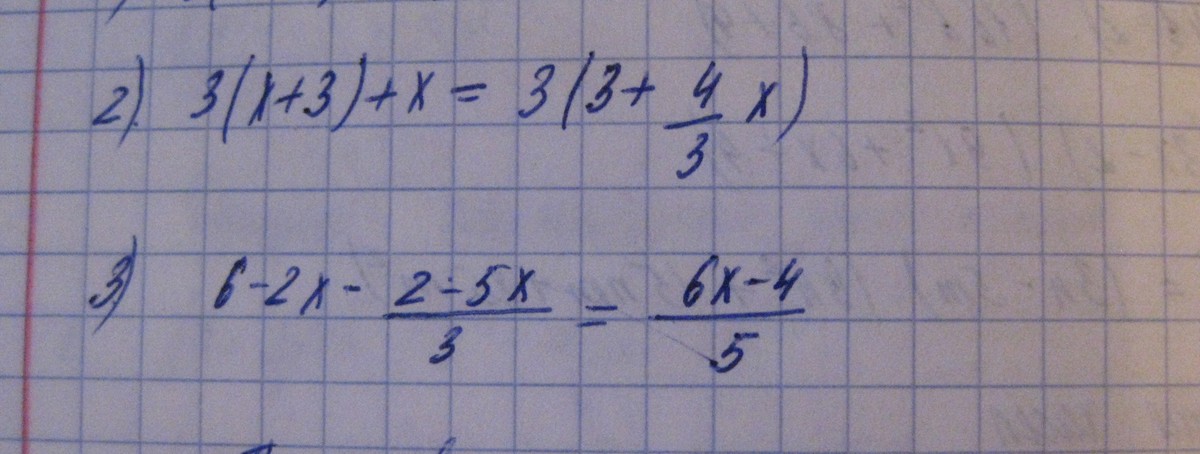 2) 3(x+3)+x = 3(3+ 4/3 x)
3) 6-2x- (2-5x)/3 = (6x-4)/5